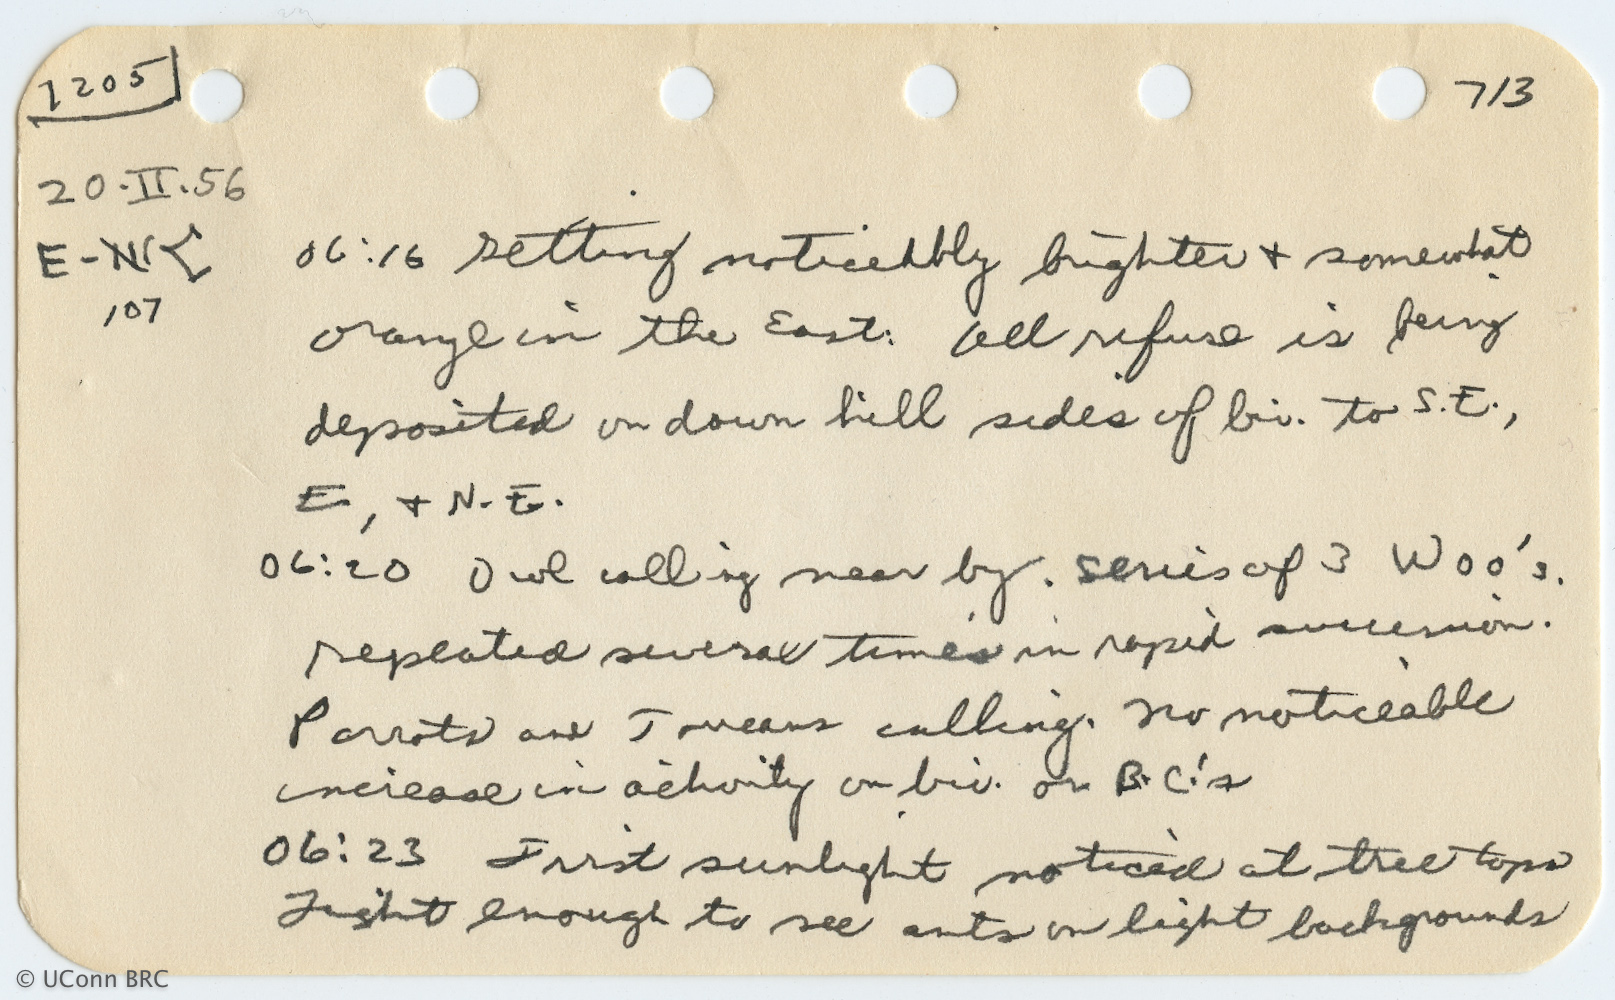 1205
713
20.II.56
E-N
107
06:16 Getting noticeably brighter + somewhat
orange in the East. All refuse is being
deposited on down hill sides of biv. to S.E.,
E, + N.E.
06:20 Owl calling near by. Series of 3 Woo's.
repeated several times in rapid succession.
Parrots and Toucans calling. No noticeable
increase in activity on biv. or B.C.'s
06:23 First sunlight noticed at tree tops
Light enough to see ants on light backgrounds
© UConn BRC